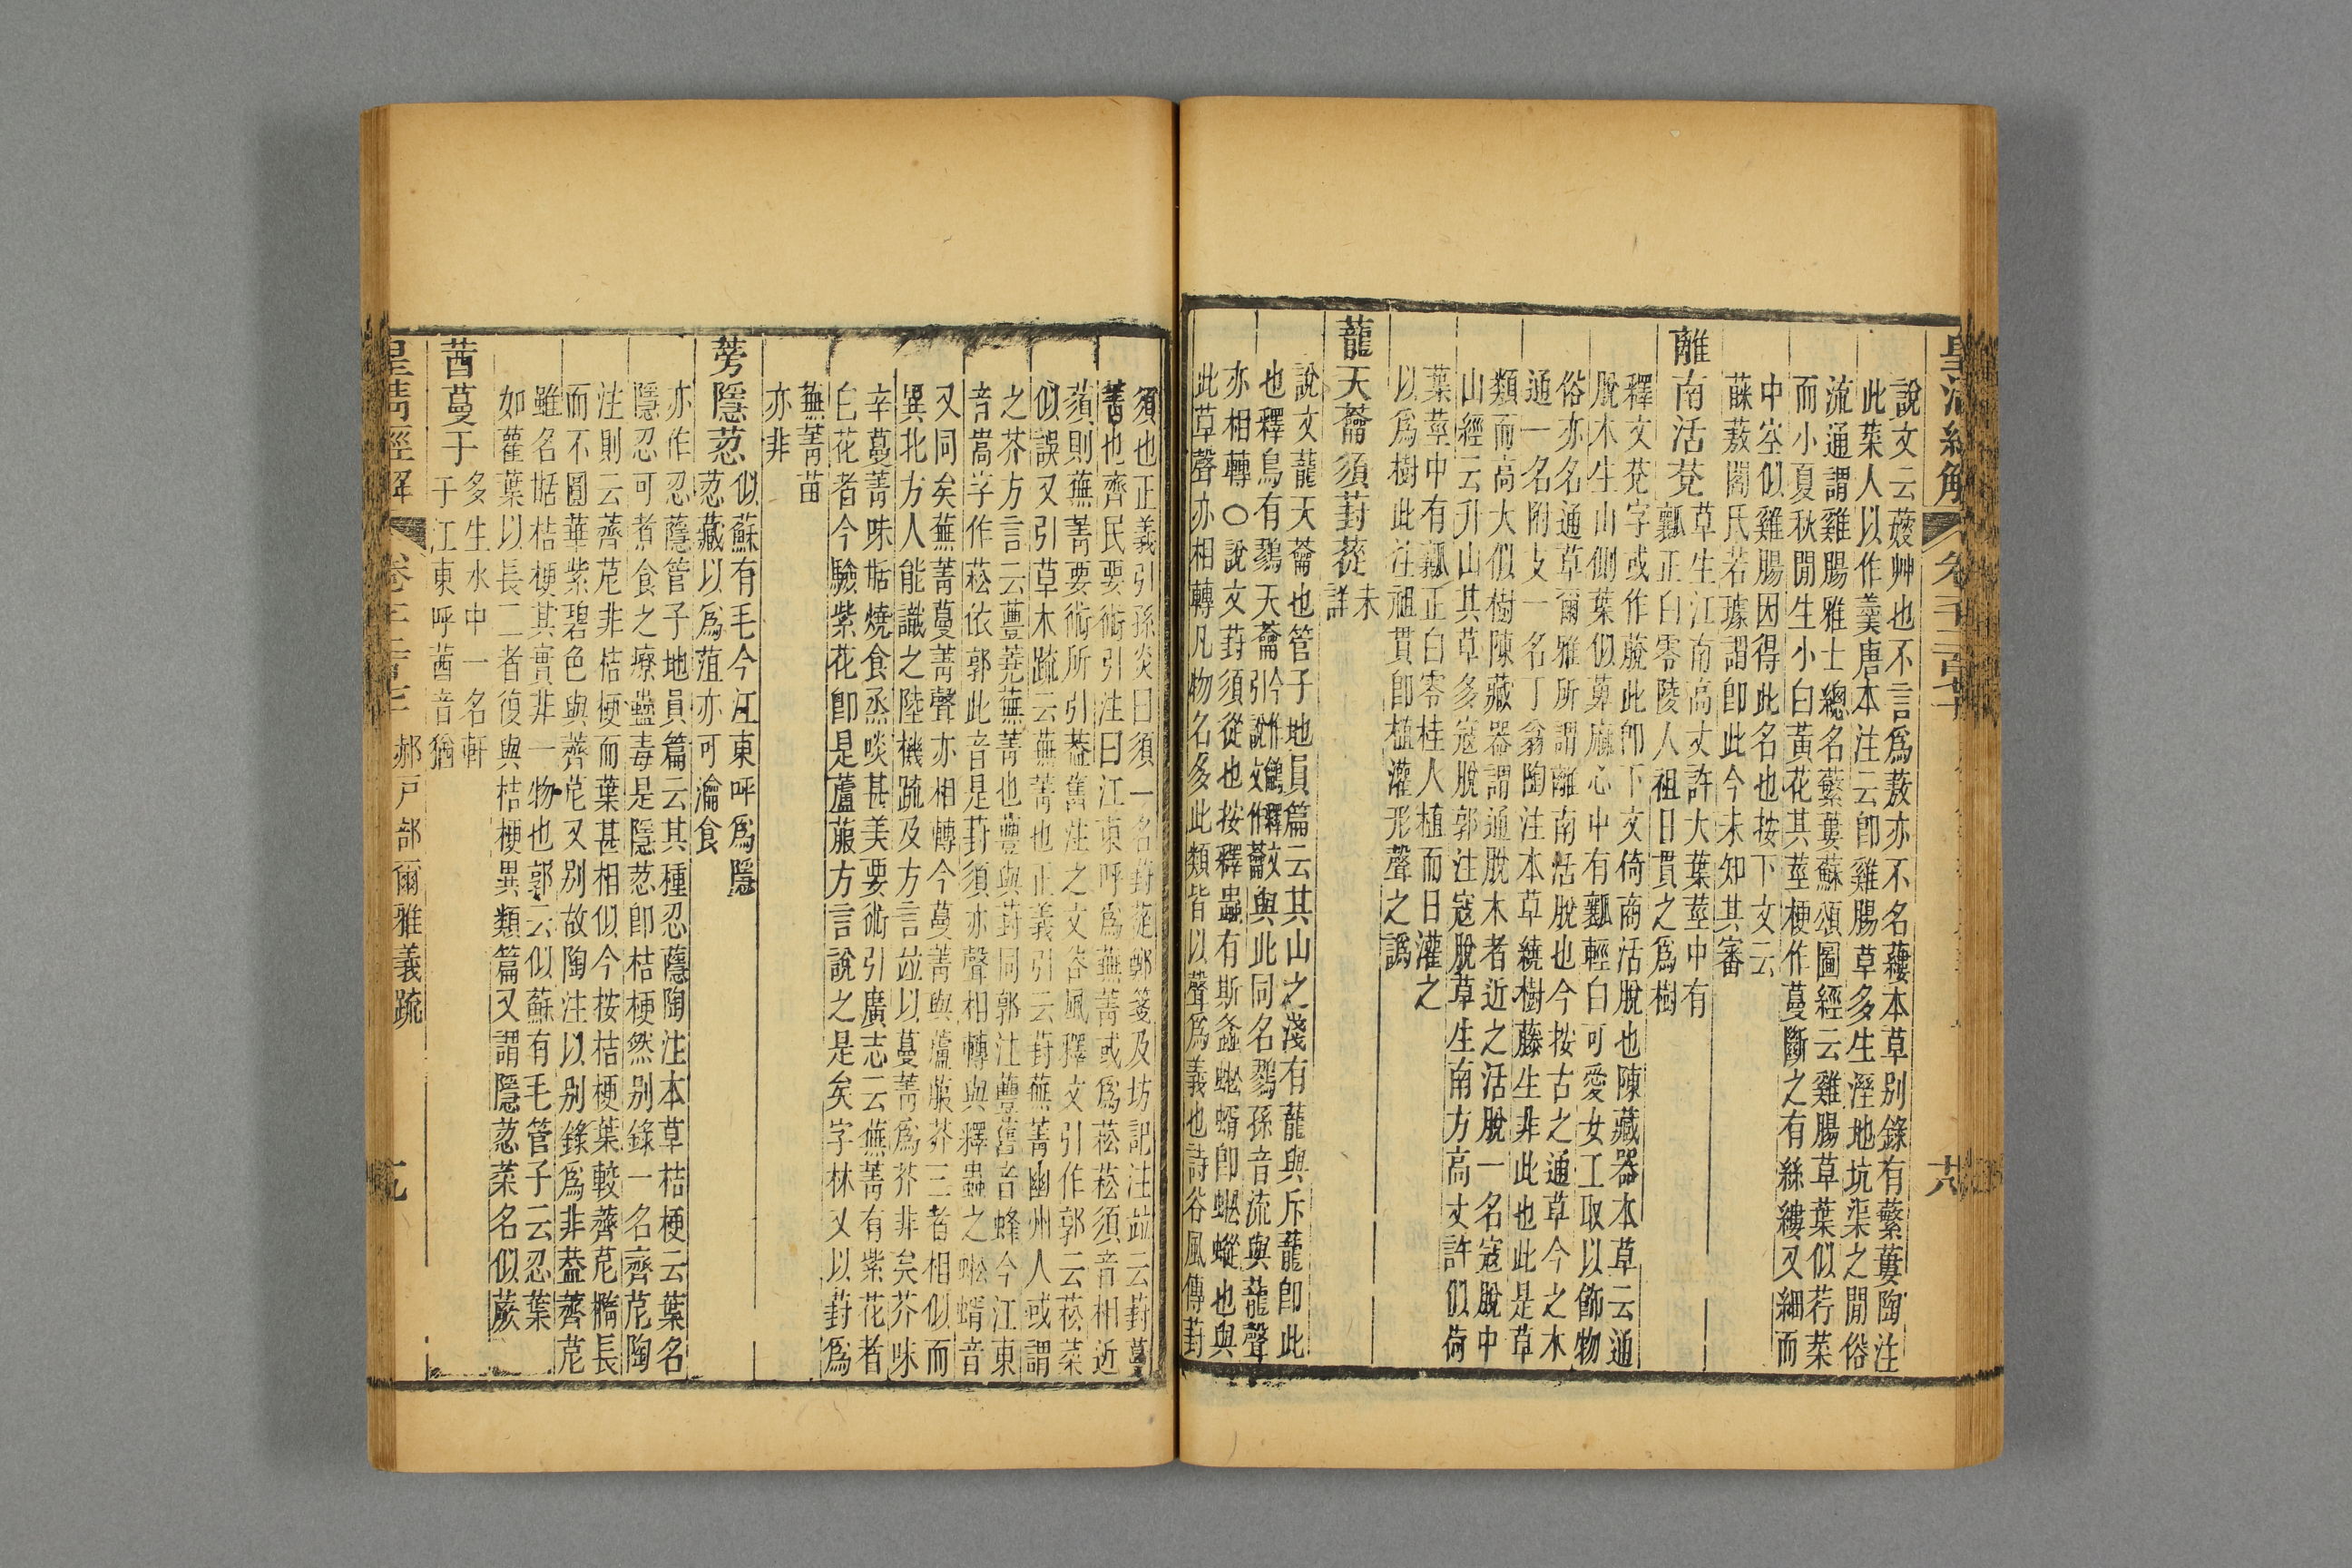 皇清經解
說文云薐艸也不言爲蔜亦不名蘰本草别錄有蘩蔞陶注
此菜人以作羹唐本注云卽雞腸草多生溼地坑渠之閒俗
流通謂雞腸雅士總名蘩蔞蘇頌圖經云雞腸草葉似荇菜
而小夏秋閒生小白黃花其莖梗作蔓斷之有絲縷又細而
中空似雞腸因得此名也按下文云
蕀蔜闕氏若璩謂卽此今未知其審
離南活莌
草生江南高丈許大葉莖中有
瓤正白零陵人祖日貫之爲樹
釋文莌字或作蔬此卽下文倚商活脫也陳藏器本草云通
脫木生山側葉似萆麻心中有瓤輕白可愛女工取以飾物
俗亦名通草爾雅所謂離南活脫也今按古之通草今之木
通一名附支一名丁翁陶注本草繞樹藤生非此也此是草
類而高大似樹陳藏器謂通脫木者近之活脫一名寇脫中
山經云升山其草多寇脫郭注寇脫草生南方高丈許似荷
葉莖中有瓤正白零桂人植而日灌之
以爲樹此注祖貫卽植灌形聲之譌
蘢天蘥須葑蓯
未
詳
說文蘢天蘥也管子地員篇云其山之淺有蘢與斥蘢卽此
也釋鳥有鷚天蘥今作鸙釋文引說文作蘥與此同名鷚孫音流與蘢聲
亦相轉○說文葑須從也按釋蟲有斯螽蚣蝑卽蚣蝑也與
此草聲亦相轉凡物名多此類皆以聲爲義也詩谷風傳葑
卷
郝戶部爾雅義疏
須也正義引孫炎曰須一名葑蓯鄭箋及坊記注竝云葑蔓
菁也齊民要術引注曰江東呼爲蕪菁或爲菘菘須音相近
蕦則蕪菁要術所引葢舊注之文谷風釋文引作郭云菘菜
似誤又引草木疏云蕪菁也正義引云葑蕪菁幽州人或謂
之芥方言云蘴蕘蕪菁也蘴與葑同郭注蘴舊音蜂今江東
音嵩字作菘依郭此音是葑須亦聲相轉與釋蟲之蚣蝑音
又同矣蕪菁蔓菁聲亦相轉今蔓菁與蘆菔芥三者相似而
異北方人能識之陸機疏及方言竝以蔓菁爲芥非矣芥味
辛蔓菁味䑙燒食烝啖甚美要術引廣志云蕪菁有紫花者
白花者今驗紫花卽是蘆菔方言說之是矣字林又以葑爲
蕪菁苗
亦非
蒡隱荵
似蘇有毛今江東呼爲隱
荵藏以爲菹亦可瀹食
亦作忍蘟管子地員篇云其種忍蘟陶注本草桔梗云葉名
隱忍可煮食之療蠱毒是隱荵卽桔梗然别錄一名薺苨陶
注則云薺苨非桔梗而葉甚相似今按桔梗葉較薺苨橢長
而不圓華紫碧色與薺苨又别故陶注以别錄爲非葢薺苨
雖名䑙桔梗其實非一物也郭云似蘇有毛管子云忍葉
如雚葉以長二者復與桔梗異類篇又謂隱荵菜名似蕨
茜蔓于
多生水中一名軒
于江東呼茜音猶
皇清經解